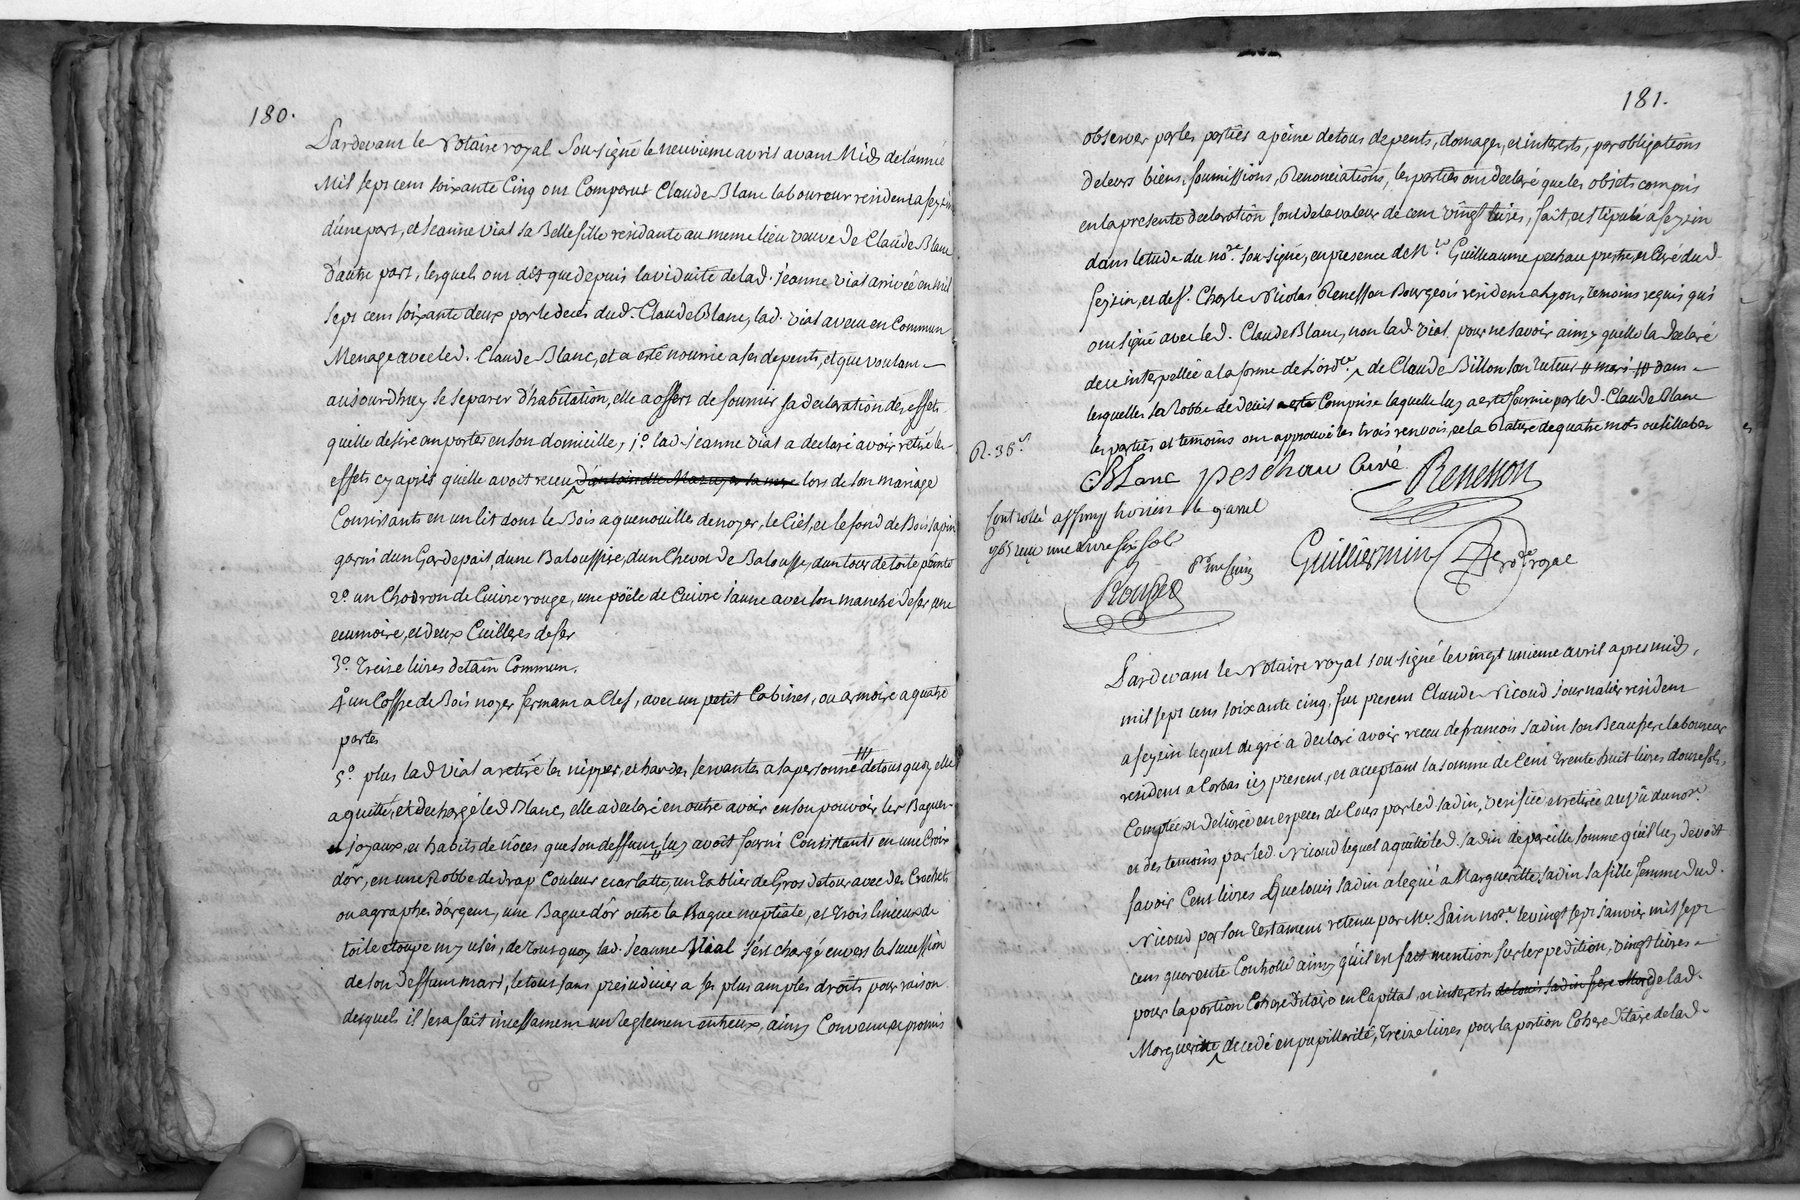 180.
Pardevant le Notaire royal Sousigné le neuvieme avril avant Midy de l'année
Mil sept cens soixante Cinq ont Comparus Claude Blanc laboureur residant a seyzin
d'une part, et Jeanne Vial sa Bellefille residante au meme lieu veuve de Claude Blanc
d'autre part, lesquels ont dit que depuis la viduité de lad. Jeanne Vial arrivée en mil
sept cens soixante deux par le deces dud. Claude Blanc, lad. Vial a vecu en Commun
Menage avec led. Claude Blanc, et a esté nourrie a ses depents, et que voulant
aujourd'huy se separer d'habitation, elle a offert de fournir sa declaration des effets
quelle desire emporter en son domicille, 1º. lad. Jeanne Vial a declaré avoir retiré les
effets cy après quelle avoit receu d'antoinette Mazuyer sa mere lors de son mariage
Consistants en un lit dont le Bois a quenouilles de noyer, le Ciel, et le fond de Bois sapin
garni d'un Gardepail, d'une Balouffiere, d'un Chevet de Balouffe, d'un tour de toile peinte
2º. un Chodron de Cuivre rouge, une poële de Cuivre jaune avec son manche de fer, une
ecumoire, et deux Cuilleres de fer
3º. Treize livres d'etain Commun.
4º un Coffre de Bois noyer fermant a Clef, avec un petit Cabinet, ou armoire a quatre
portes
5º. plus lad Vial a retiré les nippes, et hardes servantes a sa personne de tous quoy elle
a quitté, et dechargé led Blanc, elle a declaré en outre avoir en son pouvoir les Bagues
joyaux, et habits de nôces que son deffunt luy avoit fourni Consistants en une Croix
d'or, en une Robbe de drap Couleur ecarlatte, un Tablier de Gros de tour avec des Crochets
ou agraphes d'argent, une Bague d'or outre la Bague nuptiale, et trois linceux de
toile etoupe my usés, de tout quoy lad. Jeanne Vial s'est chargé envers la succession
de son deffunt mari, le tout sans prejudicier a ses plus amples droits pour raison
desquels il sera fait incessament un reglement entreux, ainsy Convenu et promis
181.
observer par les parties a peine de tous depents, domages, et interests, par obligations
de leurs biens, soumissions, Renonciations, les parties ont declaré que les objets compris
en la presente declaration sont de la valeur de cent vingt livres, fait, et stipulé a seyzin
dans l'etude du nore. Sousigné, en presence de Mre. Guilleaume peschau prestre, et Curé dud.
seyzin, et de Sr. Charle Nicolas Renesson Bourgeois residant a Lyon, temoins requis qui
ont signé avec led. Claude Blanc, non lad. Vial pour ne savoir ainsy quelle la declaré
de ce interpellée a la forme de l'ordce. de Claude Billon son tuteur // mari /// dans
lesquelles sa Robbe de deuil est Comprise laquelle luy a esté fournie par led. Claude Blanc
les parties et temoins ont approuvé les trois renvois, et la Rature de quatre mots ou sillabes
R. 36s.
Blanc peschau Curé Renesson
Controllé a st simp horien le 9 avril
1765 receu une livre six sols
Guilliermin
nore royal
Pardevant le Notaire royal sousigné le vingt unieme avril apres midy,
mil sept cens soixante cinq, fut present Claude Nicoud journalier residant
a seyzin lequel de gré a declaré avoir receu de francois Jadin son Beaufrere laboureur
residant a Corbas icy present, et acceptant la somme de Cent trente huit livres douze sols,
Comptée et delivrée en especes de Cours par led Jadin, verifiée et retirée au vû du nore.
et des temoins par led. Nicoud lequel a quitté led. Jadin de pareille somme qu'il luy devoit
savoir Cent livres que Louis Jadin a legué a Margueritte Jadin sa fille femme dud.
Nicoud par son Testament receu par Me. Sain nore. le vingt sept janvier mil sept
cens quarente Controllé ainsy qu'il en fact mention sur l'expedition, vingt livres
pour la portion Cohereditaire en Capital, et interests de louis Jadin frere Mor de lad.
Margueritte decedé en pupillarité, Treize livres pour la portion Cohereditaire de lad.